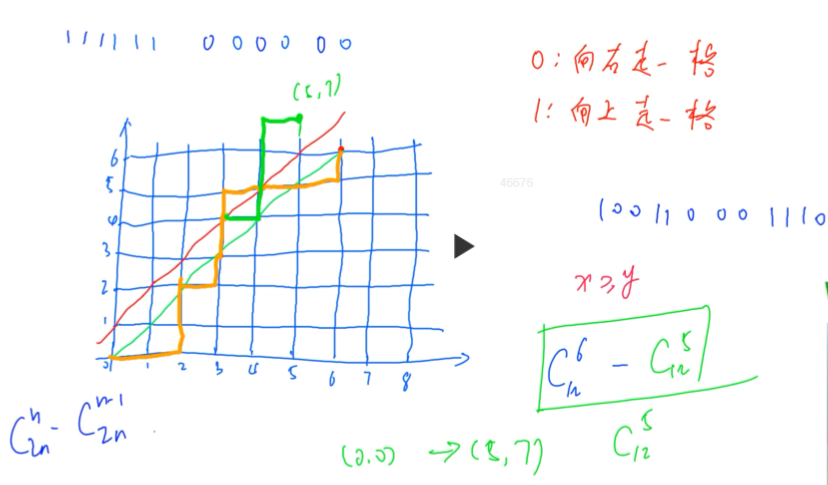 1 1 1 1 1 1 0 0 0 0 0 0
0: 向右走一格
1: 向上走一格
(5,7)
46676
6
5
4
3
2
1
0 1 2 3 4 5 6 7 8
1 0 0 1 1 0 0 0 1 1 1 0
x ≥ y
C₁₂⁶ - C₁₂⁵
C₂ₙⁿ - C₂ₙⁿ⁻¹
(0,0) → (5,7) C₁₂⁵